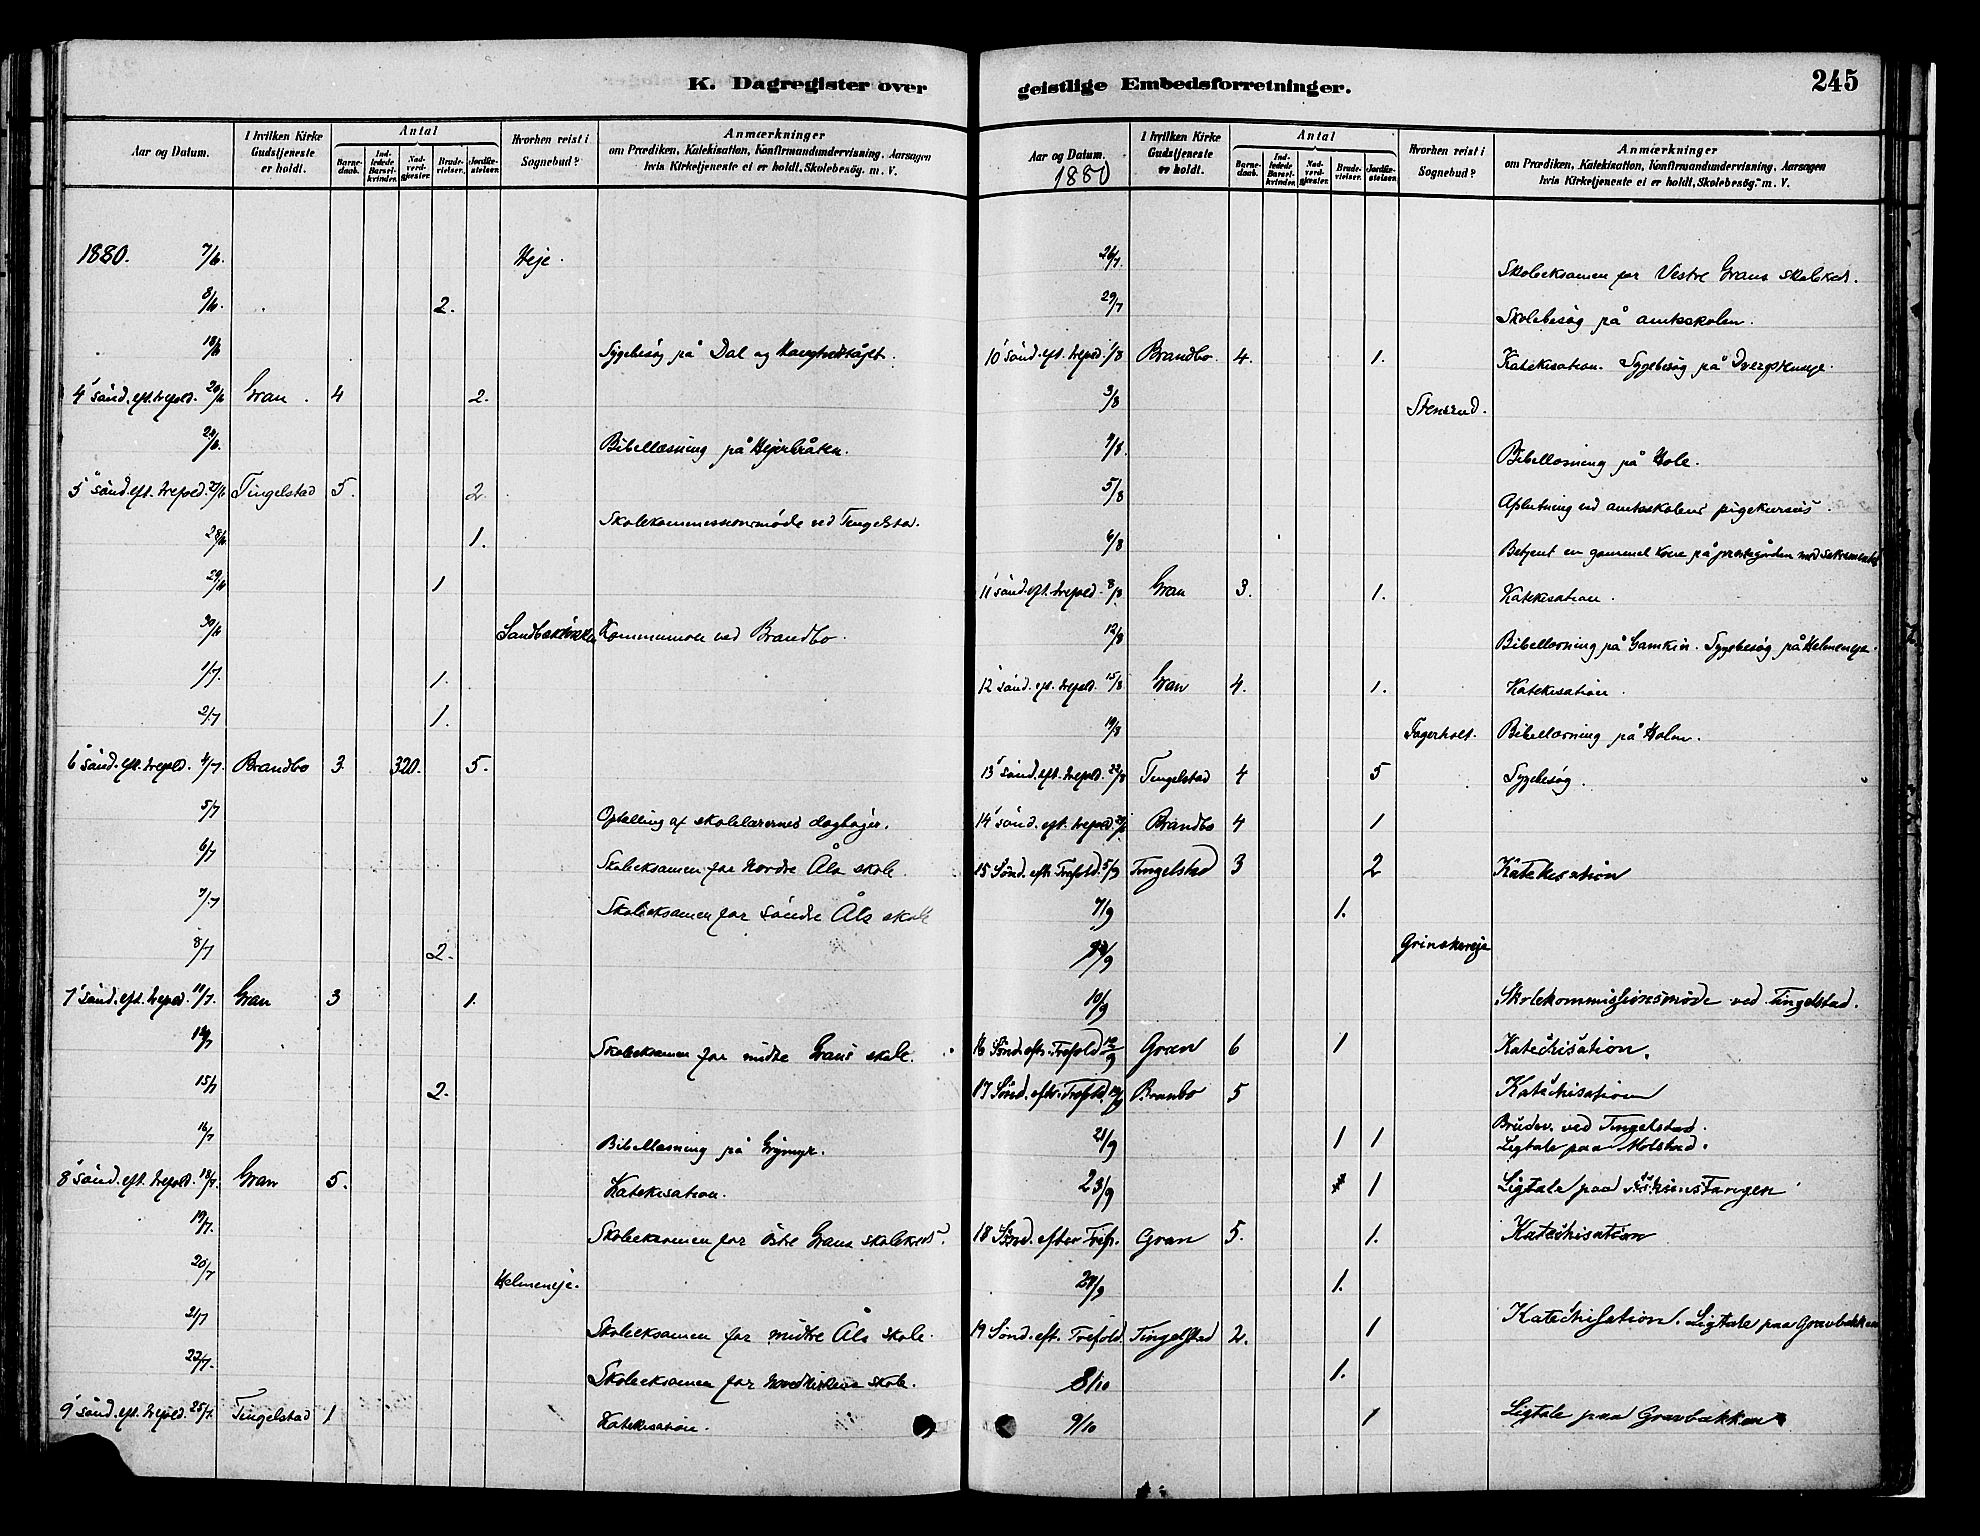 K. Dagregister over
Aar og Datum. I hvilken Kirke Gudstjeneste er holdt. Antal Barnedaab. Indledede Barselkvinder. Nadverdgjæster. Brudevielser. Jordfæstelser. Hvorhen reist i Sognebud? Anmærkninger
om Prædiken, Katekisation, Konfirmandundervisning, Aarsagen
hvis Kirketjeneste ei er holdt, Skolebesøg. m. V.
1880. 7/6. Heje.
8/6. 2.
18/6 Sygebesøg på Dal og
4' sönd. eft. trefold. 20/6 Gran. 4 2.
24/6. Bibellæsning på
5' sönd. eft. trefold. 27/6 Tingelstad 5. 2.
Skolekommissionsmøde ved Tingelstad.
28/6. 1.
29/6 1
30/6 Kommunion ved Brandbo.
1/7. 1.
2/7 1.
6' sönd. eft. trefold. 4/7. Brandbo 3. 320. 5.
5/7 Optælling af skolelærernes dagbøger.
6/7 Skoleeksamen for Nordre Åls skole.
7/7 Skoleeksamen for söndre Åls skole
8/7 2.
7' sönd. eft. trefold. 11/7. Gran 3 1.
Skoleeksamen for midtre Grans skole.
15/7 2.
16/7 Bibellæsning på Grymyr.
8' sönd. eft. trefold. 18/7. Gran 5. Katekisation.
19/7. Skoleeksamen for östre Grans skolekreds.
20/7 Helmeneje.
21/7 Skoleeksamen for midtre Åls skole.
22/7. Skoleeksamen for hovedkirkens skole.
9' sönd. eft. trefold. 25/7. Tingelstad 1 Katekisation.
geistlige Embedsforretninger. 245
Aar og Datum. I hvilken Kirke Gudstjeneste er holdt. Antal Barnedaab. Indledede Barselkvinder. Nadverdgjæster. Brudevielser. Jordfæstelser. Hvorhen reist i Sognebud? Anmærkninger
om Prædiken, Katekisation, Konfirmandundervisning, Aarsagen
hvis Kirketjeneste ei er holdt, Skolebesøg. m. V.
1880
26/7. Skoleeksamen for Vestre Grans skolekreds.
29/7 Skolebesøg på amtsskolen.
10' sönd. eft. trefold. 1/8 Brandbo. 4. 1. Katekisation. Sygebesøg på Dvergstneje.
3/8 Stensrud.
4/8. Bibellæsning på Hole.
5/8 Afslutning ved amtsskolens pigekursus.
6/8 Betjent en gammel kone på prestegården med sakramentet
11' sönd. eft. trefold. 8/8. Gran 3. 1. Katekisation.
12/8 Bibellæsning på Gamkin. Sygebesøg på Helmeneje.
12' sönd. eft. trefold. 15/8 Gran 4. 1. Katekisation.
19/8 Fagerholt. Bibellæsning på Holm.
13' sönd. eft. trefold. 22/8 Tingelstad 4 5 Sygebesøg.
14' sönd. eft. trefold. 29/8 Brandbo 4 1
15 Sønd. eftr. Trefold. 5/9 Tingelstad 3 2 Katekisation
7/9 1.
Grinakereje
10/9 Skolekommissionsmøde ved Tingelstad.
16 Sønd. eftr. Trefold 12/9 Gran 6 1 Katechisation.
17 Sønd. eftr. Trefold. 19/9 Branbo 5 Katechisation
21/9 1 1 Brudev. ved Tingelstad.
Ligtale paa Molstad.
23/9 1 Ligtale paa
18 Sønd. efter Tref. Gran 5. 1. Katechisation
1.
19 Sønd. eft. Trefold. Tingelstad 2. 1 Katechisation. Ligtale paa Gravbakken
8/10 1.
9/10 1 Ligtale paa Gravbakken